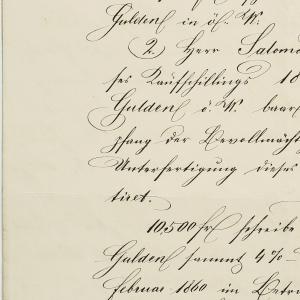 Gulden in ö. W.
2. Herr Salomo
ses Kaufschillings 10
Gulden ö. W. baar
pfang der Bevollmächt
Unterfertigung dieses
tiret.
10,500 fr schreibe
Gulden sammt 4%
Februar 1860 im Betra